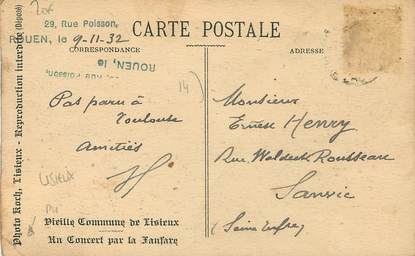 20f
29, Rue Poisson,
ROUEN, le 9-11-32
CARTE POSTALE
CORRESPONDANCE
ADRESSE
ROUEN, le
Rue Poisson,
14
Pas paru à
Toulouse
Amitiés
Monsieur
Ernest Henry
Rue Waldeck Rousseau
Sanvic
(Seine Infre)
LISIEUX
Vieille Commune de Lisieux
Un Concert par la Fanfare
Photo Koch, Lisieux - Reproduction interdite (Déposé)